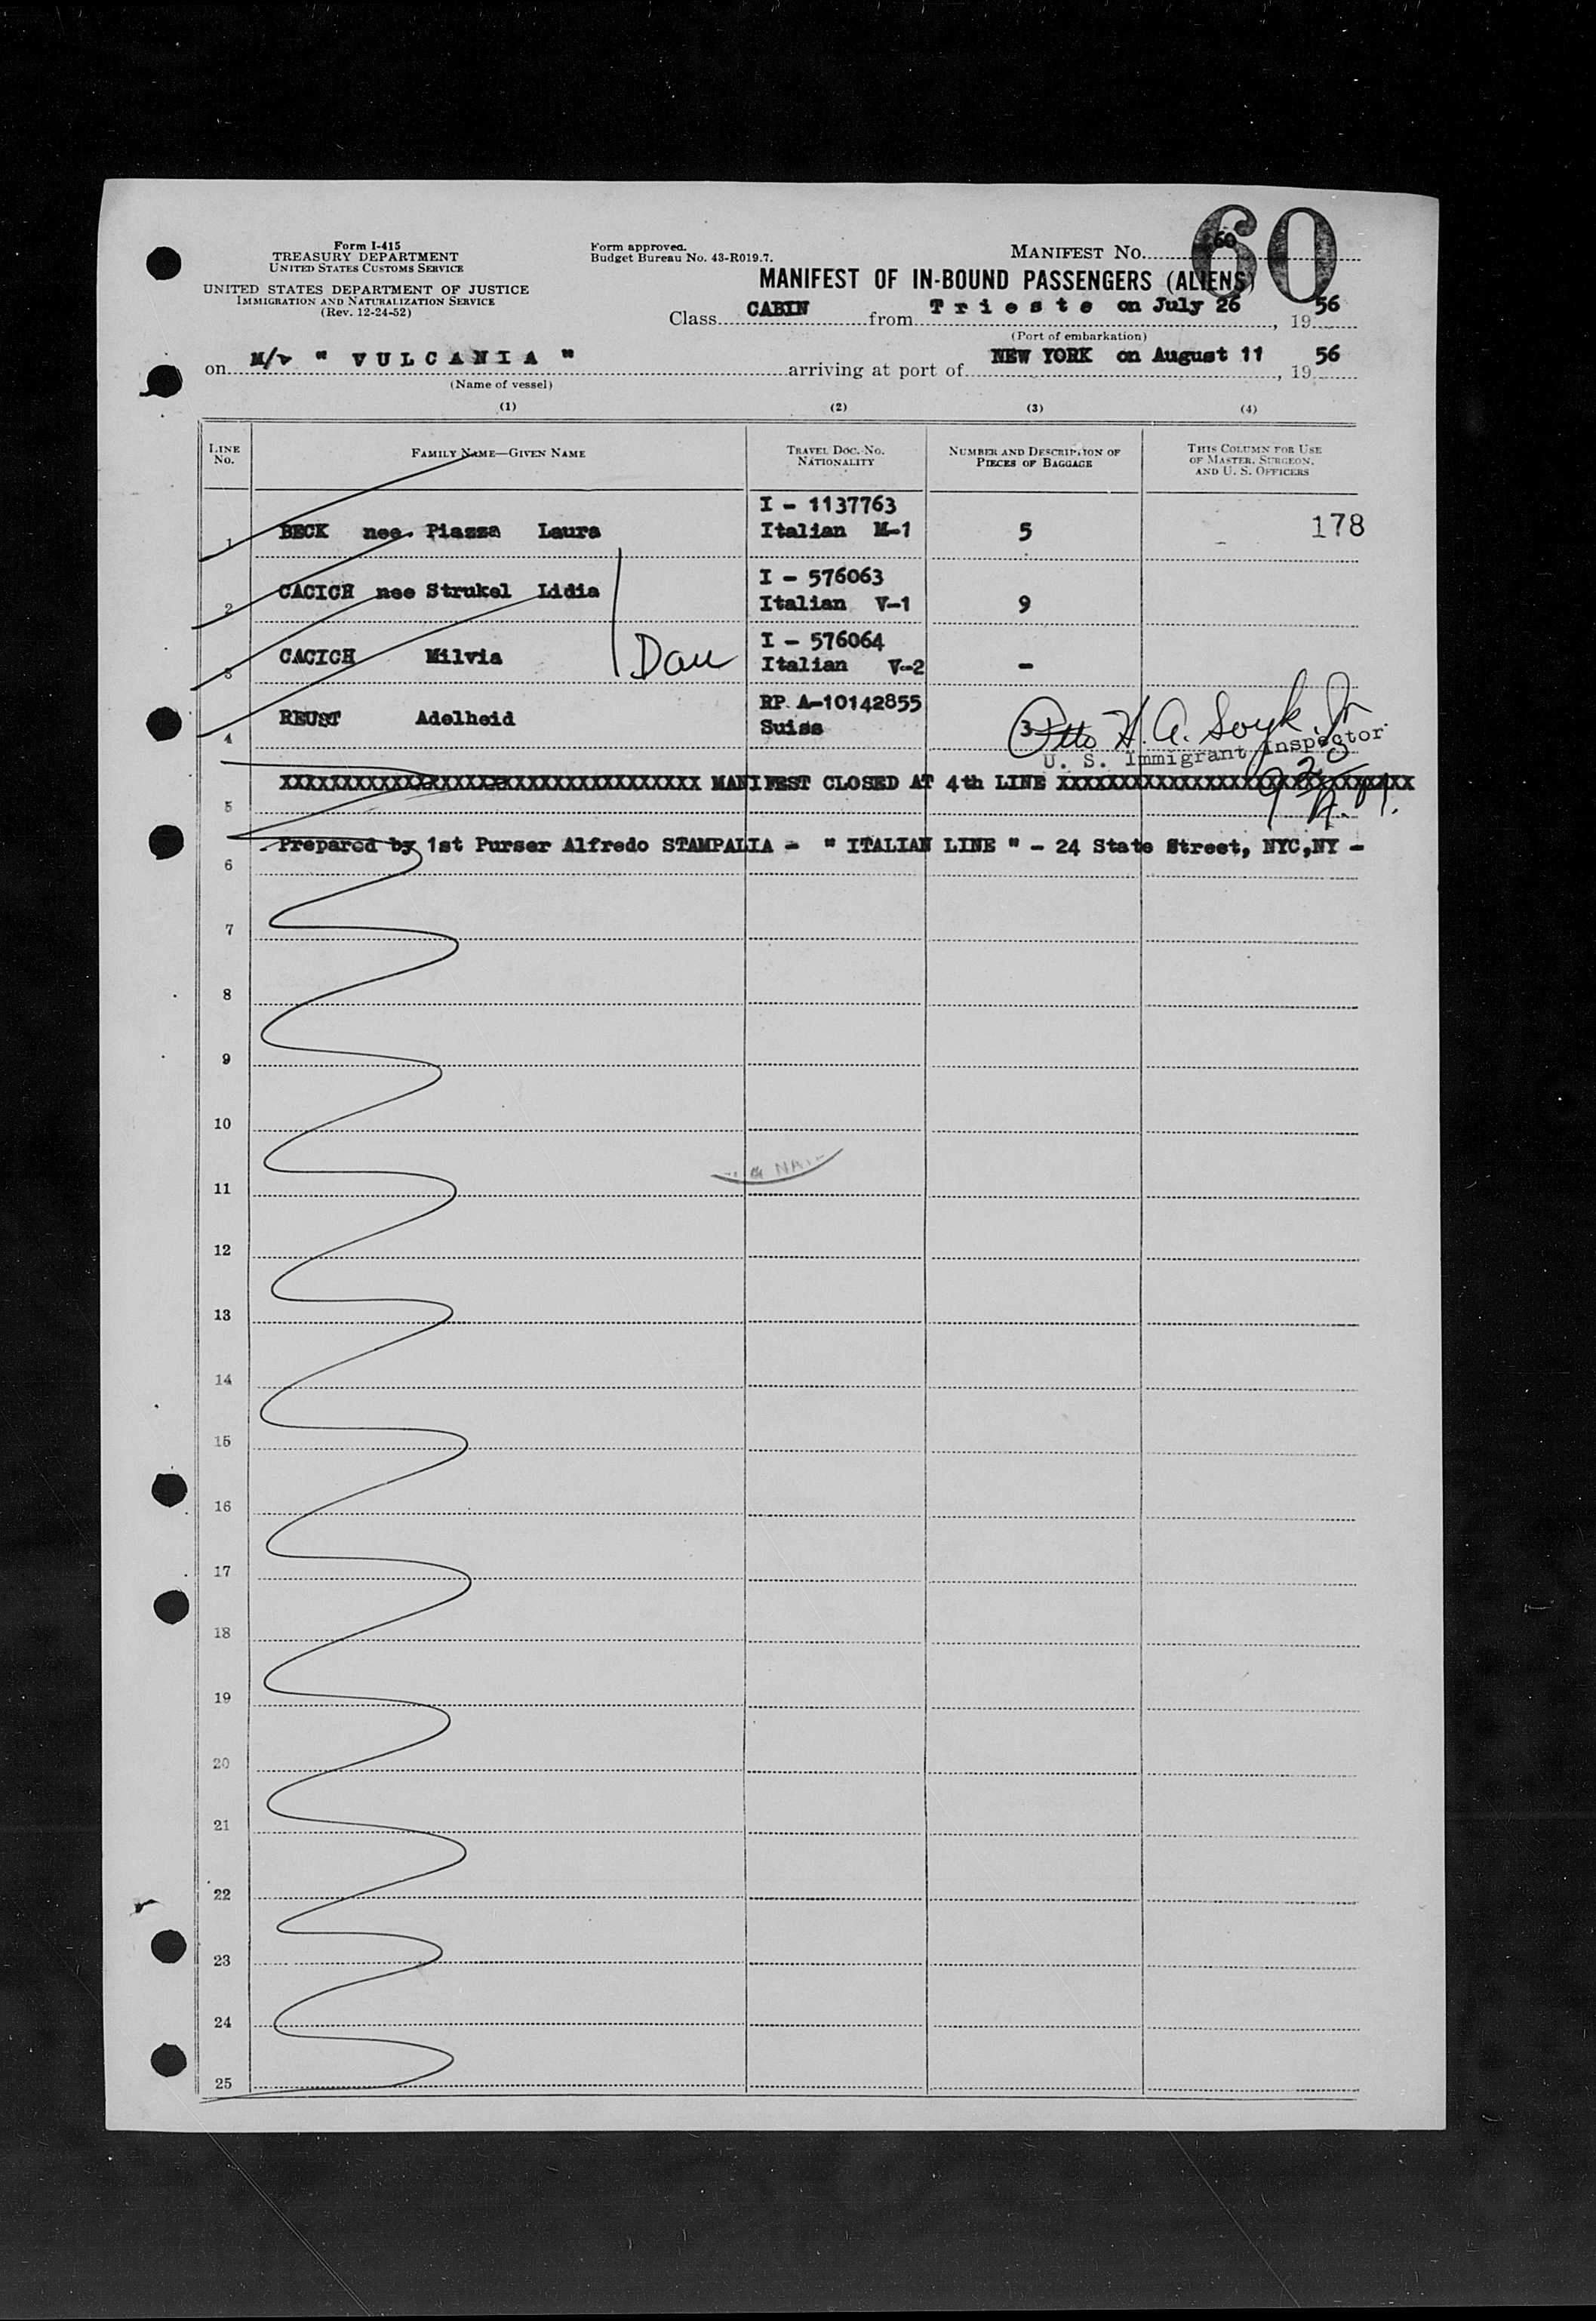 Form I-415
TREASURY DEPARTMENT
UNITED STATES CUSTOMS SERVICE
UNITED STATES DEPARTMENT OF JUSTICE
IMMIGRATION AND NATURALIZATION SERVICE
(Rev. 12-24-52)
Form approved.
Budget Bureau No. 43-R019.7.
MANIFEST No. 60
60
MANIFEST OF IN-BOUND PASSENGERS (ALIENS)
Class CABIN from Trieste on July 26, 1956
(Port of embarkation)
on M/v " VULCANIA " arriving at port of NEW YORK on August 11, 1956
(Name of vessel)
(1) (2) (3) (4)
LINE No. FAMILY NAME—GIVEN NAME TRAVEL DOC. NO. NATIONALITY NUMBER AND DESCRIPTION OF PIECES OF BAGGAGE THIS COLUMN FOR USE OF MASTER, SURGEON, AND U. S. OFFICERS
I - 1137763
1 BECK nee. Piazza Laura Italian M-1 5 178
I - 576063
2 CACICH nee Strukel Lidia Italian V-1 9
I - 576064
3 CACICH Milvia Dau Italian V-2 -
RP A-10142855
4 REUST Adelheid Suiss 3
Otto H. A. Soyk Jr
U. S. Immigrant Inspector
XXXXXXXXXXXXXXXXXXXXXXXXXXXXXXXXXX MANIFEST CLOSED AT 4th LINE XXXXXXXXXXXXXXXXXXXXXXXXXXXXX
5
6 Prepared by 1st Purser Alfredo STAMPALIA - " ITALIAN LINE " - 24 State Street, NYC,NY -
7
8
9
10
11
12
13
14
15
16
17
18
19
20
21
22
23
24
25